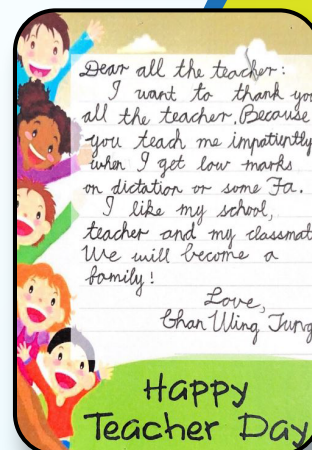 Dear all the teacher:
I want to thank you
all the teacher. Because
you teach me impatiently
when I get low marks
on dictation or some Fa.
I like my school,
teacher and my classmat
We will become a
family!
Love,
Chan Wing Tung
Happy
Teacher Day